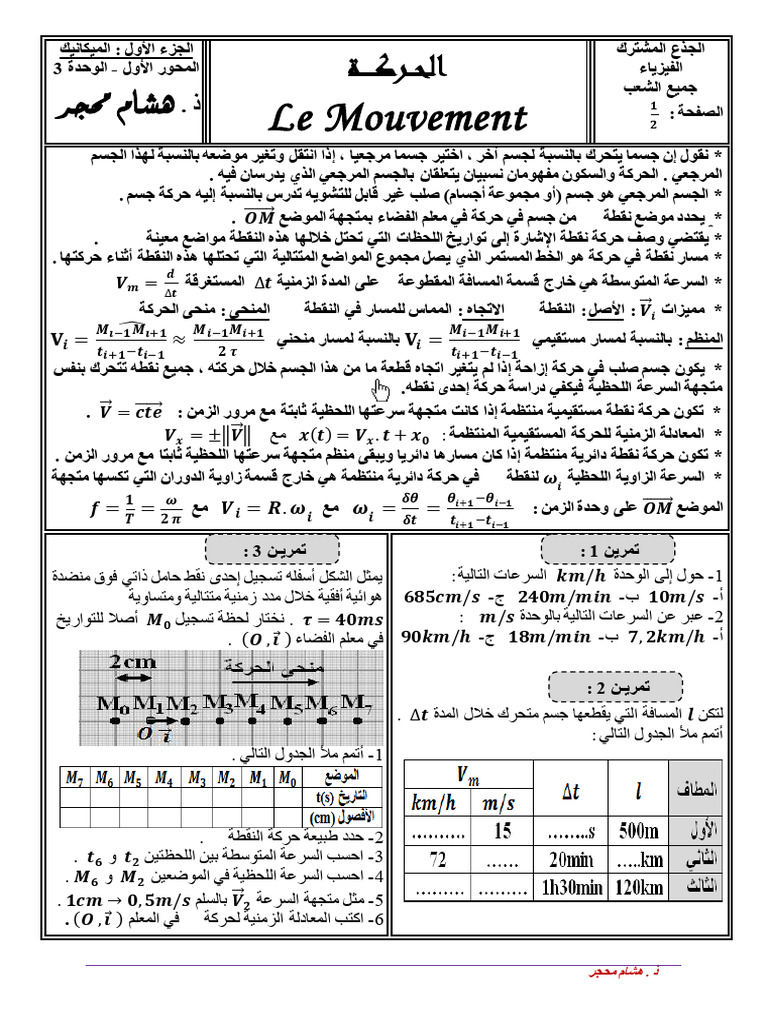 الجذع المشترك
الفيزياء
جميع الشعب
الصفحة : 1/2
الحركة
Le Mouvement
الجزء الأول : الميكانيك
المحور الأول - الوحدة 3
ذ . هشام محجر
* نقول إن جسما يتحرك بالنسبة لجسم أخر ، اختير جسما مرجعيا ، إذا انتقل وتغير موضعه بالنسبة لهذا الجسم
المرجعي . الحركة والسكون مفهومان نسبيان يتعلقان بالجسم المرجعي الذي يدرسان فيه .
* الجسم المرجعي هو جسم (أو مجموعة أجسام) صلب غير قابل للتشويه تدرس بالنسبة إليه حركة جسم .
* يحدد موضع نقطة من جسم في حركة في معلم الفضاء بمتجهة الموضع OM⃗ .
* يقتضي وصف حركة نقطة الإشارة إلى تواريخ اللحظات التي تحتل خلالها هذه النقطة مواضع معينة .
* مسار نقطة في حركة هو الخط المستمر الذي يصل مجموع المواضع المتتالية التي تحتلها هذه النقطة أثناء حركتها .
* السرعة المتوسطة هي خارج قسمة المسافة المقطوعة على المدة الزمنية Δt المستغرقة V_m = d/Δt
* مميزات V⃗_i : الأصل: النقطة الاتجاه: المماس للمسار في النقطة المنحى: منحى الحركة
المنظم: بالنسبة لمسار مستقيمي V_i = M_{i−1}M_{i+1}/(t_{i+1}−t_{i−1}) بالنسبة لمسار منحني V_i = M_{i−1}M_{i+1}/(t_{i+1}−t_{i−1}) ≈ M_{i−1}M_{i+1}/(2 τ)
* يكون جسم صلب في حركة إزاحة إذا لم يتغير اتجاه قطعة ما من هذا الجسم خلال حركته ، جميع نقطه تتحرك بنفس
متجهة السرعة اللحظية فيكفي دراسة حركة إحدى نقطه.
* تكون حركة نقطة مستقيمية منتظمة إذا كانت متجهة سرعتها اللحظية ثابتة مع مرور الزمن : V⃗ = cte⃗ .
* المعادلة الزمنية للحركة المستقيمية المنتظمة: x(t) = V_x . t + x_0 مع V_x = ±‖V⃗‖
* تكون حركة نقطة دائرية منتظمة إذا كان مسارها دائريا ويبقى منظم متجهة سرعتها اللحظية ثابتا مع مرور الزمن .
* السرعة الزاوية اللحظية ω_i لنقطة في حركة دائرية منتظمة هي خارج قسمة زاوية الدوران التي تكسها متجهة
الموضع OM⃗ على وحدة الزمن: ω_i = δθ/δt = (θ_{i+1}−θ_{i−1})/(t_{i+1}−t_{i−1}) مع V_i = R. ω_i مع f = 1/T = ω/(2 π)
تمرين 1 :
1- حول إلى الوحدة km/h السرعات التالية:
أ- 10m/s ب- 240m/min ج- 685cm/s
2- عبر عن السرعات التالية بالوحدة m/s :
أ- 7,2km/h ب- 18m/min ج- 90km/h
تمرين 2 :
لتكن l المسافة التي يقطعها جسم متحرك خلال المدة Δt .
أتمم ملأ الجدول التالي:
المطاف l Δt V_m
m/s km/h
الأول 500m ........s 15 ..........
الثاني .....km 20min ...... 72
الثالث 120km 1h30min ......... .........
تمرين 3 :
يمثل الشكل أسفله تسجيل إحدى نقط حامل ذاتي فوق منضدة
هوائية أفقية خلال مدد زمنية متتالية ومتساوية
τ = 40ms . نختار لحظة تسجيل M_0 أصلا للتواريخ
في معلم الفضاء (O , i⃗) .
2cm
منحى الحركة
M0 M1 M2 M3 M4 M5 M6 M7
O i⃗
1- أتمم ملأ الجدول التالي .
الموضع M0 M1 M2 M3 M4 M5 M6 M7
التاريخ t(s)
الأفصول (cm)
2- حدد طبيعة حركة النقطة .
3- احسب السرعة المتوسطة بين اللحظتين t_2 و t_6 .
4- احسب السرعة اللحظية في الموضعين M_2 و M_6 .
5- مثل متجهة السرعة V⃗_2 بالسلم 1cm → 0,5m/s .
6- اكتب المعادلة الزمنية لحركة في المعلم (O , i⃗) .
ذ . هشام محجر